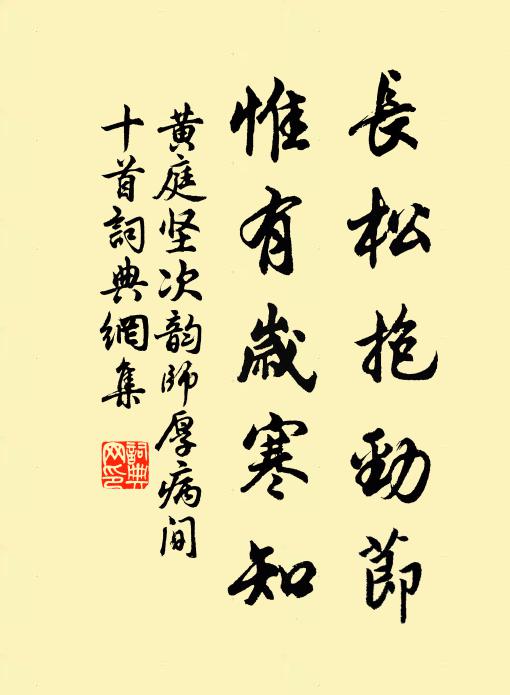 長松抱勁節
惟有歲寒知
黄庭坚次韵師厚病间
十首詞典網集
詞典网印